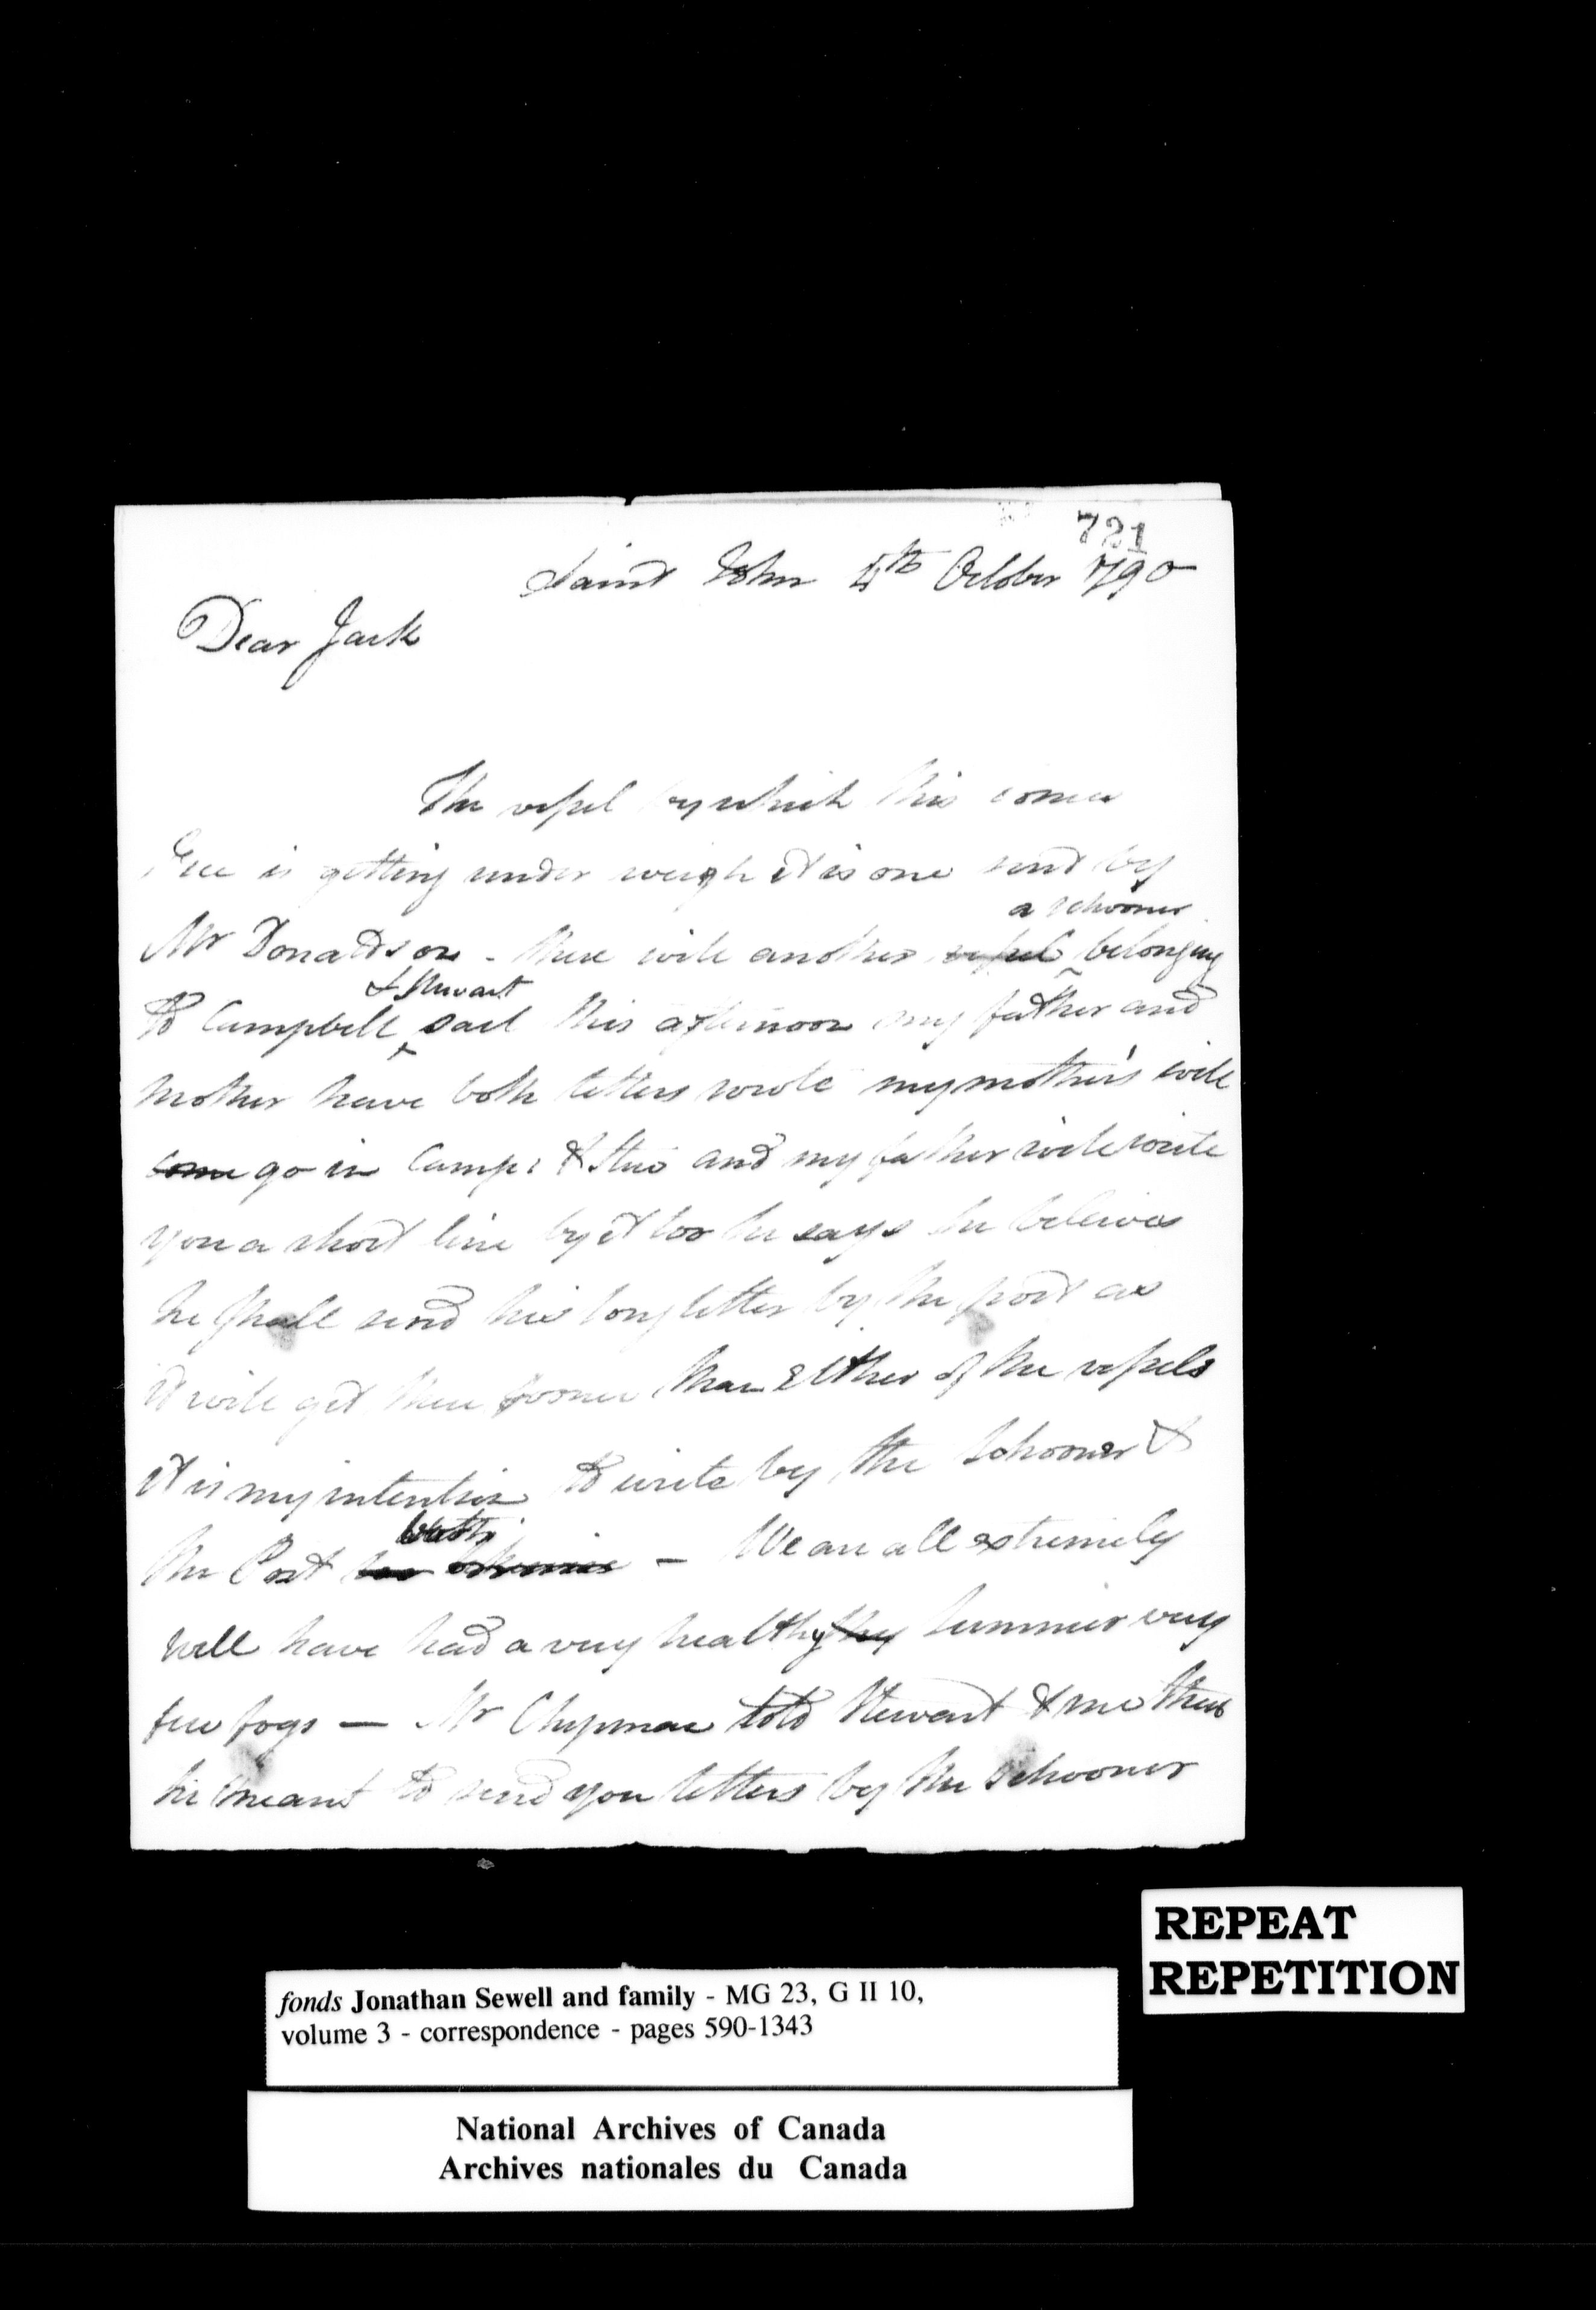 721
Saint John 4th October 1790
Dear Jack
The vessel by which this comes
is getting under weigh it is one sent by
a schooner
Mr Donaldson - there will another vessel belonging
& Stewart
to Campbell sail this afternoon my father and
mother have both letters wrote my mother's will
come go in Camp: & Stew and my father will write
you a short line by it too he says he believes
he shall send his long letter by the post as
it will get there sooner than Either of the vessels
it is my intention to write by the Schooner &
the Post
We are all extremely
well have had a very healthy summer very
few fogs — Mr Chipman told Stewart & me that
he meant to send you letters by the Schooner
REPEAT
REPETITION
fonds Jonathan Sewell and family - MG 23, G II 10,
volume 3 - correspondence - pages 590-1343
National Archives of Canada
Archives nationales du Canada